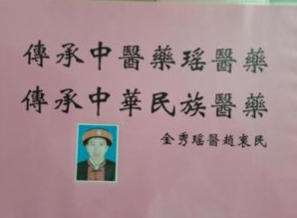 傳承中醫藥瑤醫藥
傳承中華民族醫藥
金秀瑤醫趙衷民